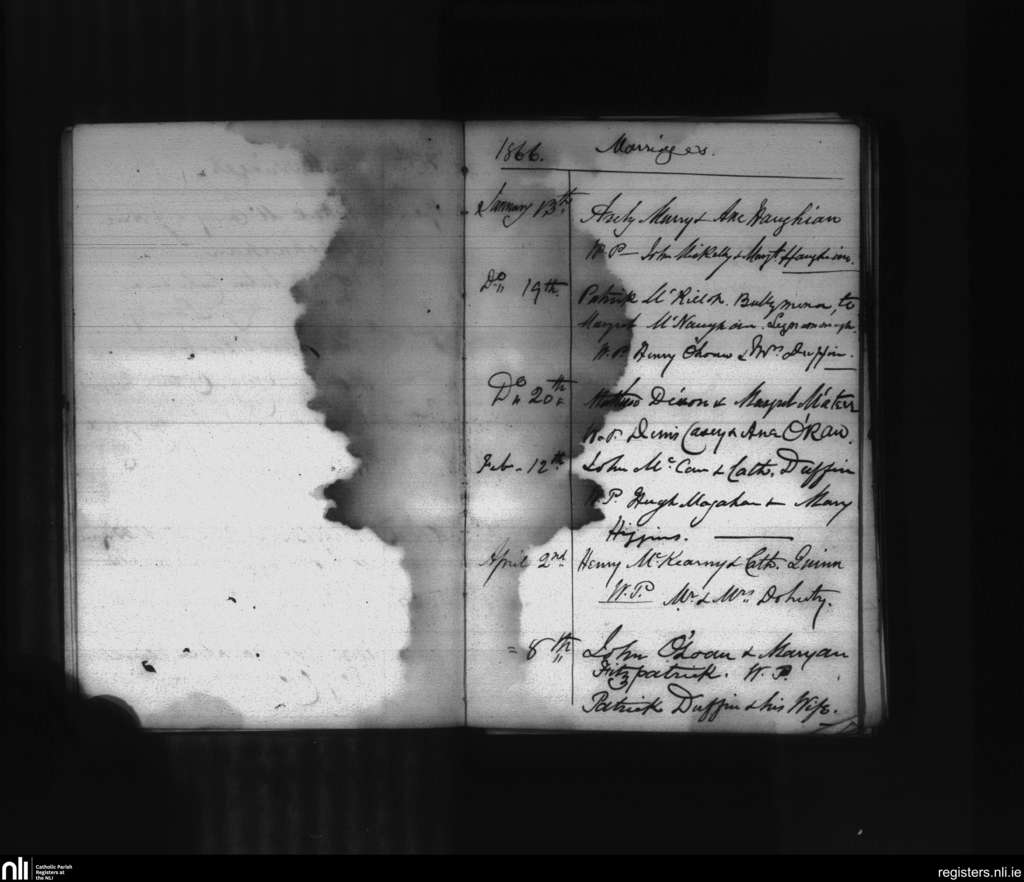 1866. Marriages.
January 13th. Murry & Ane Haughian
W. P — John McKelly & Margt Haughian.
Do 19th. Patrick Ballymena, to
Margret McNaughan.
W. P. Henry O'Loan & Mrs Duffin.
Do 20th Dixon & Margret
W. P. Denis Casey & Ane O'Raw.
Feb. 12th. John McCan & Cath. Duffin
W. P. Hugh Magahan & Mary
Higgins.
April 2nd Henry McKearny & Cath. Quinn
W. P. Mr & Mrs Doherty.
= 8th John O'Loan & Maryan
Fitzpatrick. W. P.
Patrick Duffin & his Wife.
nli
Catholic Parish
Registers at
the NLI
registers.nli.ie